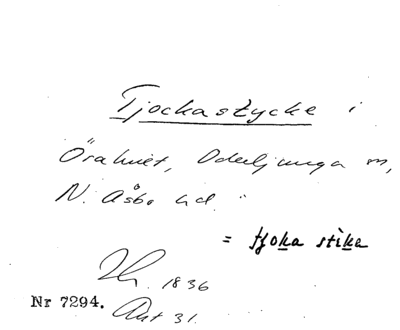 Tjockastycke i
Örahult, Oderljunga sn,
N. Åsbo hd.
= tjoka stika
1836
Nr 7294. Akt 31.